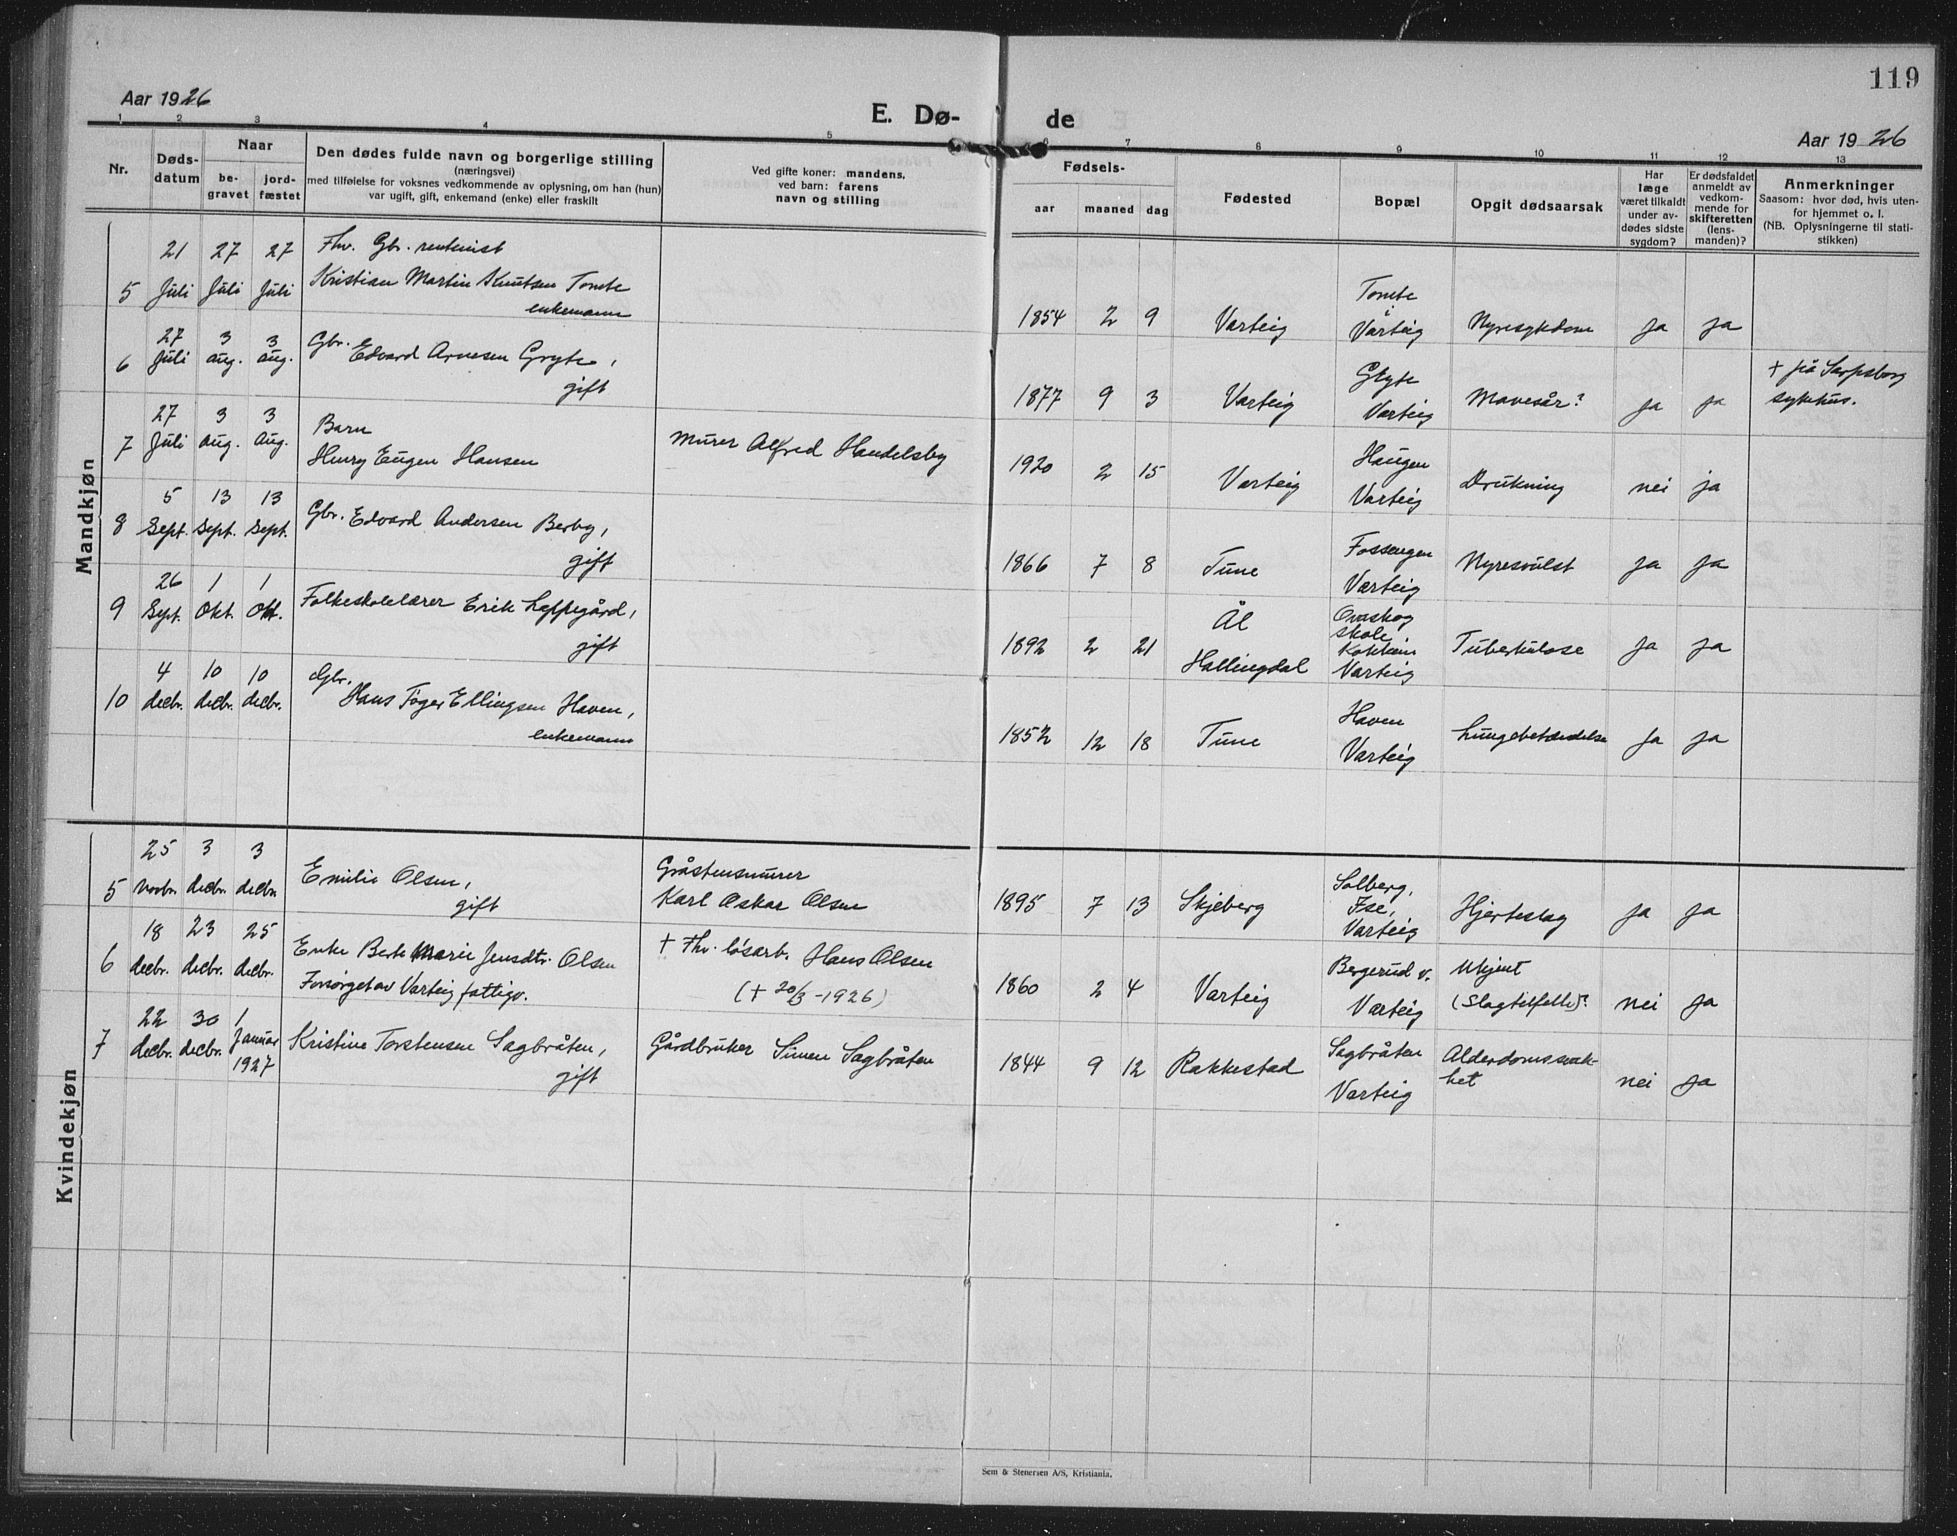 119
Aar 1926
E. Dø-
de
Aar 1926
1 2 3 4 5 6 7 8 9 10 11 12 13
Nr.
Døds-
datum
Naar
be-
gravet
jord-
fæstet
Den dødes fulde navn og borgerlige stilling
(næringsvei)
med tilføielse for voksnes vedkommende av oplysning, om han (hun)
var ugift, gift, enkemand (enke) eller fraskilt
Ved gifte koner: mandens,
ved barn: farens
navn og stilling
Fødsels-
aar maaned dag
Fødested
Bopæl
Opgit dødsaarsak
Har
læge
været tilkaldt
under av-
dødes sidste
sygdom?
Er dødsfaldet
anmeldt av
vedkom-
mende for
skifteretten
(lens-
manden)?
Anmerkninger
Saasom: hvor død, hvis uten-
for hjemmet o. l.
(NB. Oplysningerne til stati-
stikken)
Mandkjøn
21 27 27 Fhv. Gbr. rentenist
5 Juli Juli Juli Kristian Martin Knutsen Tomte
enkemann
1854 2 9 Varteig
Tomte
i
Varteig
Nyresykdom ja ja
27 3 3 Gbr.
6 Juli aug. aug. Edvard Arnesen Gryte,
gift
1877 9 3 Varteig
Gryte
Varteig
Mavesår? ja ja
+ på Sarpsborg
sykehus.
27 3 3 Barn
7 Juli aug. aug. Henry Eugen Hansen
Murer Alfred Handelsby
1920 2 15 Varteig
Haugen
Varteig
Drukning nei ja
5 13 13
8 Sept. Sept. Sept. Gbr. Edvard Andersen Berby,
gift
1866 7 8 Tune
Fossengen
Varteig
Nyresvulst ja ja
26 1 1
9 Sept. Okt. Okt. Folkeskolelærer Erik Leppegård,
gift
1892 2 21
Ål
Hallingdal
skole
Varteig
Tuberkulose ja ja
4 10 10 Gbr.
10 decbr. decbr. decbr. Hans Tøger Ellingsen Haven,
enkemann
1852 12 18 Tune
Haven
Varteig
Lungebetændelse ja ja
Kvindekjøn
25 3 3
5 novbr. decbr. decbr. Emilie Olsen,
gift
Gråstensmurer
Karl Oskar Olsen
1895 7 13 Skjeberg
Solberg,
Ise,
Varteig
Hjerteslag ja ja
18 23 25
6 decbr. decbr. decbr. Enke Berte Marie Jensdtr. Olsen
Forsørget av Varteig fattigv.
+ Fhv. løsarb. Hans Olsen
(+ 20/3-1926)
1860 2 4 Varteig
Bergerud v.
Varteig
Ukjent
(Slagtilfelle)? nei ja
22 30 1
7 decbr. decbr. Januar
1927
Kristine Torstensen Sagbråten,
gift
Gårdbruker Simen Sagbråten
1844 9 12 Rakkestad
Sagbråten
Varteig
Alderdomssvak-
het
nei ja
Sem & Stenersen A/S, Kristiania.